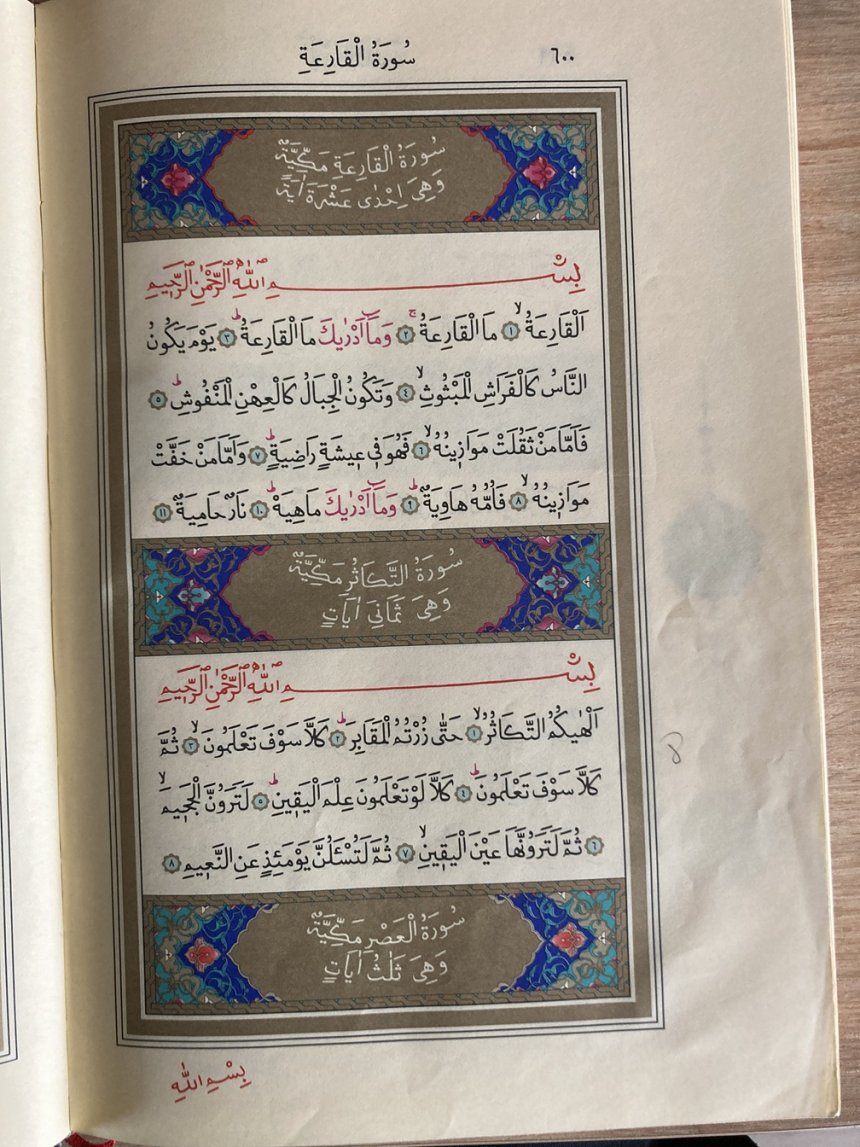 ٦٠٠
سُورَةُ الْقَارِعَةِ
سُورَةُ الْقَارِعَةِ مَكِّيَّةٌ
وَهِيَ اِحْدٰى عَشْرَةَ اٰيَةً
بِسْمِ اللّٰهِ الرَّحْمٰنِ الرَّحٖيمِ
اَلْقَارِعَةُۙ ﴿١﴾ مَا الْقَارِعَةُۚ ﴿٢﴾ وَمَٓا اَدْرٰيكَ مَا الْقَارِعَةُؕ ﴿٣﴾ يَوْمَ يَكُونُ
النَّاسُ كَالْفَرَاشِ الْمَبْثُوثِۙ ﴿٤﴾ وَتَكُونُ الْجِبَالُ كَالْعِهْنِ الْمَنْفُوشِؕ ﴿٥﴾
فَاَمَّا مَنْ ثَقُلَتْ مَوَازٖينُهُۙ ﴿٦﴾ فَهُوَ فٖي عٖيشَةٍ رَاضِيَةٍؕ ﴿٧﴾ وَاَمَّا مَنْ خَفَّتْ
مَوَازٖينُهُۙ ﴿٨﴾ فَاُمُّهُ هَاوِيَةٌؕ ﴿٩﴾ وَمَٓا اَدْرٰيكَ مَاهِيَهْؕ ﴿١٠﴾ نَارٌ حَامِيَةٌ ﴿١١﴾
سُورَةُ التَّكَاثُرِ مَكِّيَّةٌ
وَهِيَ ثَمَانِيَ اٰيَاتٍ
بِسْمِ اللّٰهِ الرَّحْمٰنِ الرَّحٖيمِ
اَلْهٰيكُمُ التَّكَاثُرُۙ ﴿١﴾ حَتّٰى زُرْتُمُ الْمَقَابِرَؕ ﴿٢﴾ كَلَّا سَوْفَ تَعْلَمُونَۙ ﴿٣﴾ ثُمَّ
كَلَّا سَوْفَ تَعْلَمُونَؕ ﴿٤﴾ كَلَّا لَوْ تَعْلَمُونَ عِلْمَ الْيَقٖينِؕ ﴿٥﴾ لَتَرَوُنَّ الْجَحٖيمَۙ
﴿٦﴾ ثُمَّ لَتَرَوُنَّهَا عَيْنَ الْيَقٖينِۙ ﴿٧﴾ ثُمَّ لَتُسْـَٔلُنَّ يَوْمَئِذٍ عَنِ النَّعٖيمِ ﴿٨﴾
سُورَةُ الْعَصْرِ مَكِّيَّةٌ
وَهِيَ ثَلٰثُ اٰيَاتٍ
بِسْمِ اللّٰهِ